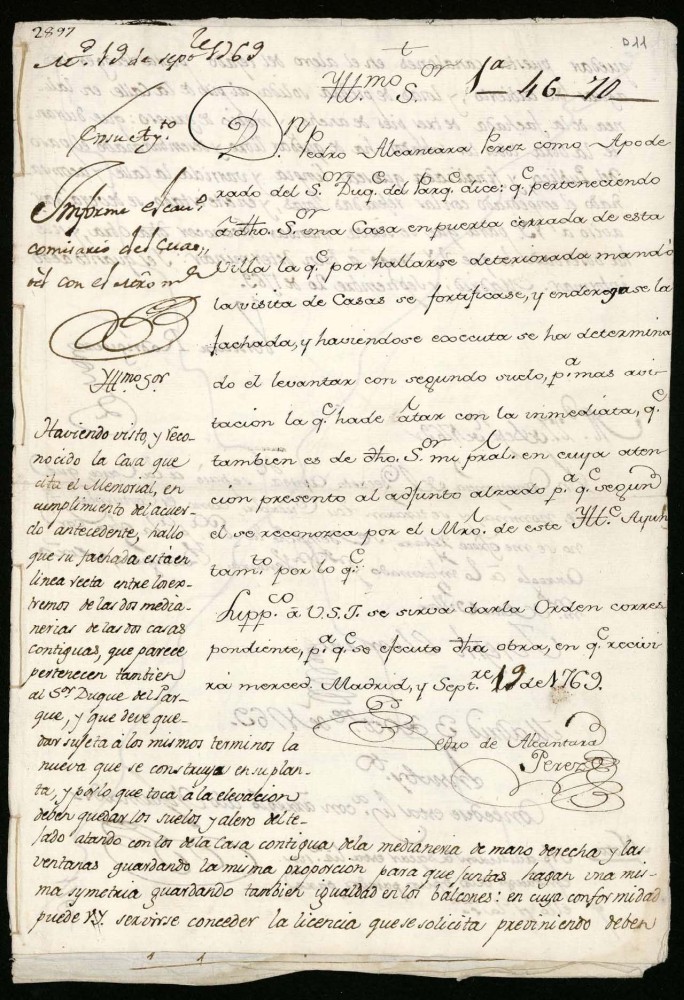 2897
D 11
M.d 19 de sepbre 1769
1a–46–70
Yll.mo S.or
En su Ay.to
Informe el cau.o
comisario del Quar-
tel con el Mro m.r
Dn Pedro Alcantara Perez como Apode
rado del S.or Duq.e del Parq.e dice: q.e perteneciendo
â dho. S.or una Casa en puerta cerrada de esta
Villa la q.e por hallarse deteriorada mandó
la visita de Casas se fortificase, y enderezase la
fachada, y haviendose execcuta se ha determina
do el levantar con segundo suelo, p.a mas avi-
tacion la q.e hade atar con la inmediata, q.e
tambien es de dho. S.or mi pral. en cuya aten-
cion presento al adjunto alzado p.a q.e segun
el se reconozca por el Mro. de este Yll.e Ayun
tam.to por lo q.e
Supp.co â V.S.I. se sirva darla Orden corres
pondiente, p.a q.e se ejecute dha obra, en q.e recivi
rá merced. Madrid, y Sept.re 19 de 1769.
Pedro de Alcantara
Perez
Yll.mo Sor
Haviendo visto, y reco-
nocido la Casa que
cita el Memorial, en
cumplimiento del acuer-
do antecedente, hallo
que su fachada está en
linea recta entre los ex-
tremos de las dos media-
nerias de las dos casas
contiguas, que parece
pertenecen tambien
al S.or Duque del Par-
que, y que deve que-
dar sujeta â los mismos terminos la
nueva que se construya en su plan-
ta, y por lo que toca â la elevacion
deben quedar los suelos y alero del te-
jado atando con los de la Casa contigua dela medianeria de mano derecha y las
ventanas guardando la misma proporcion para que juntas hagan una mis-
ma symetria guardando tambien igualdad en los balcones: en cuya conformidad
puede V.Y. servirse conceder la licencia que se solicita previniendo deben